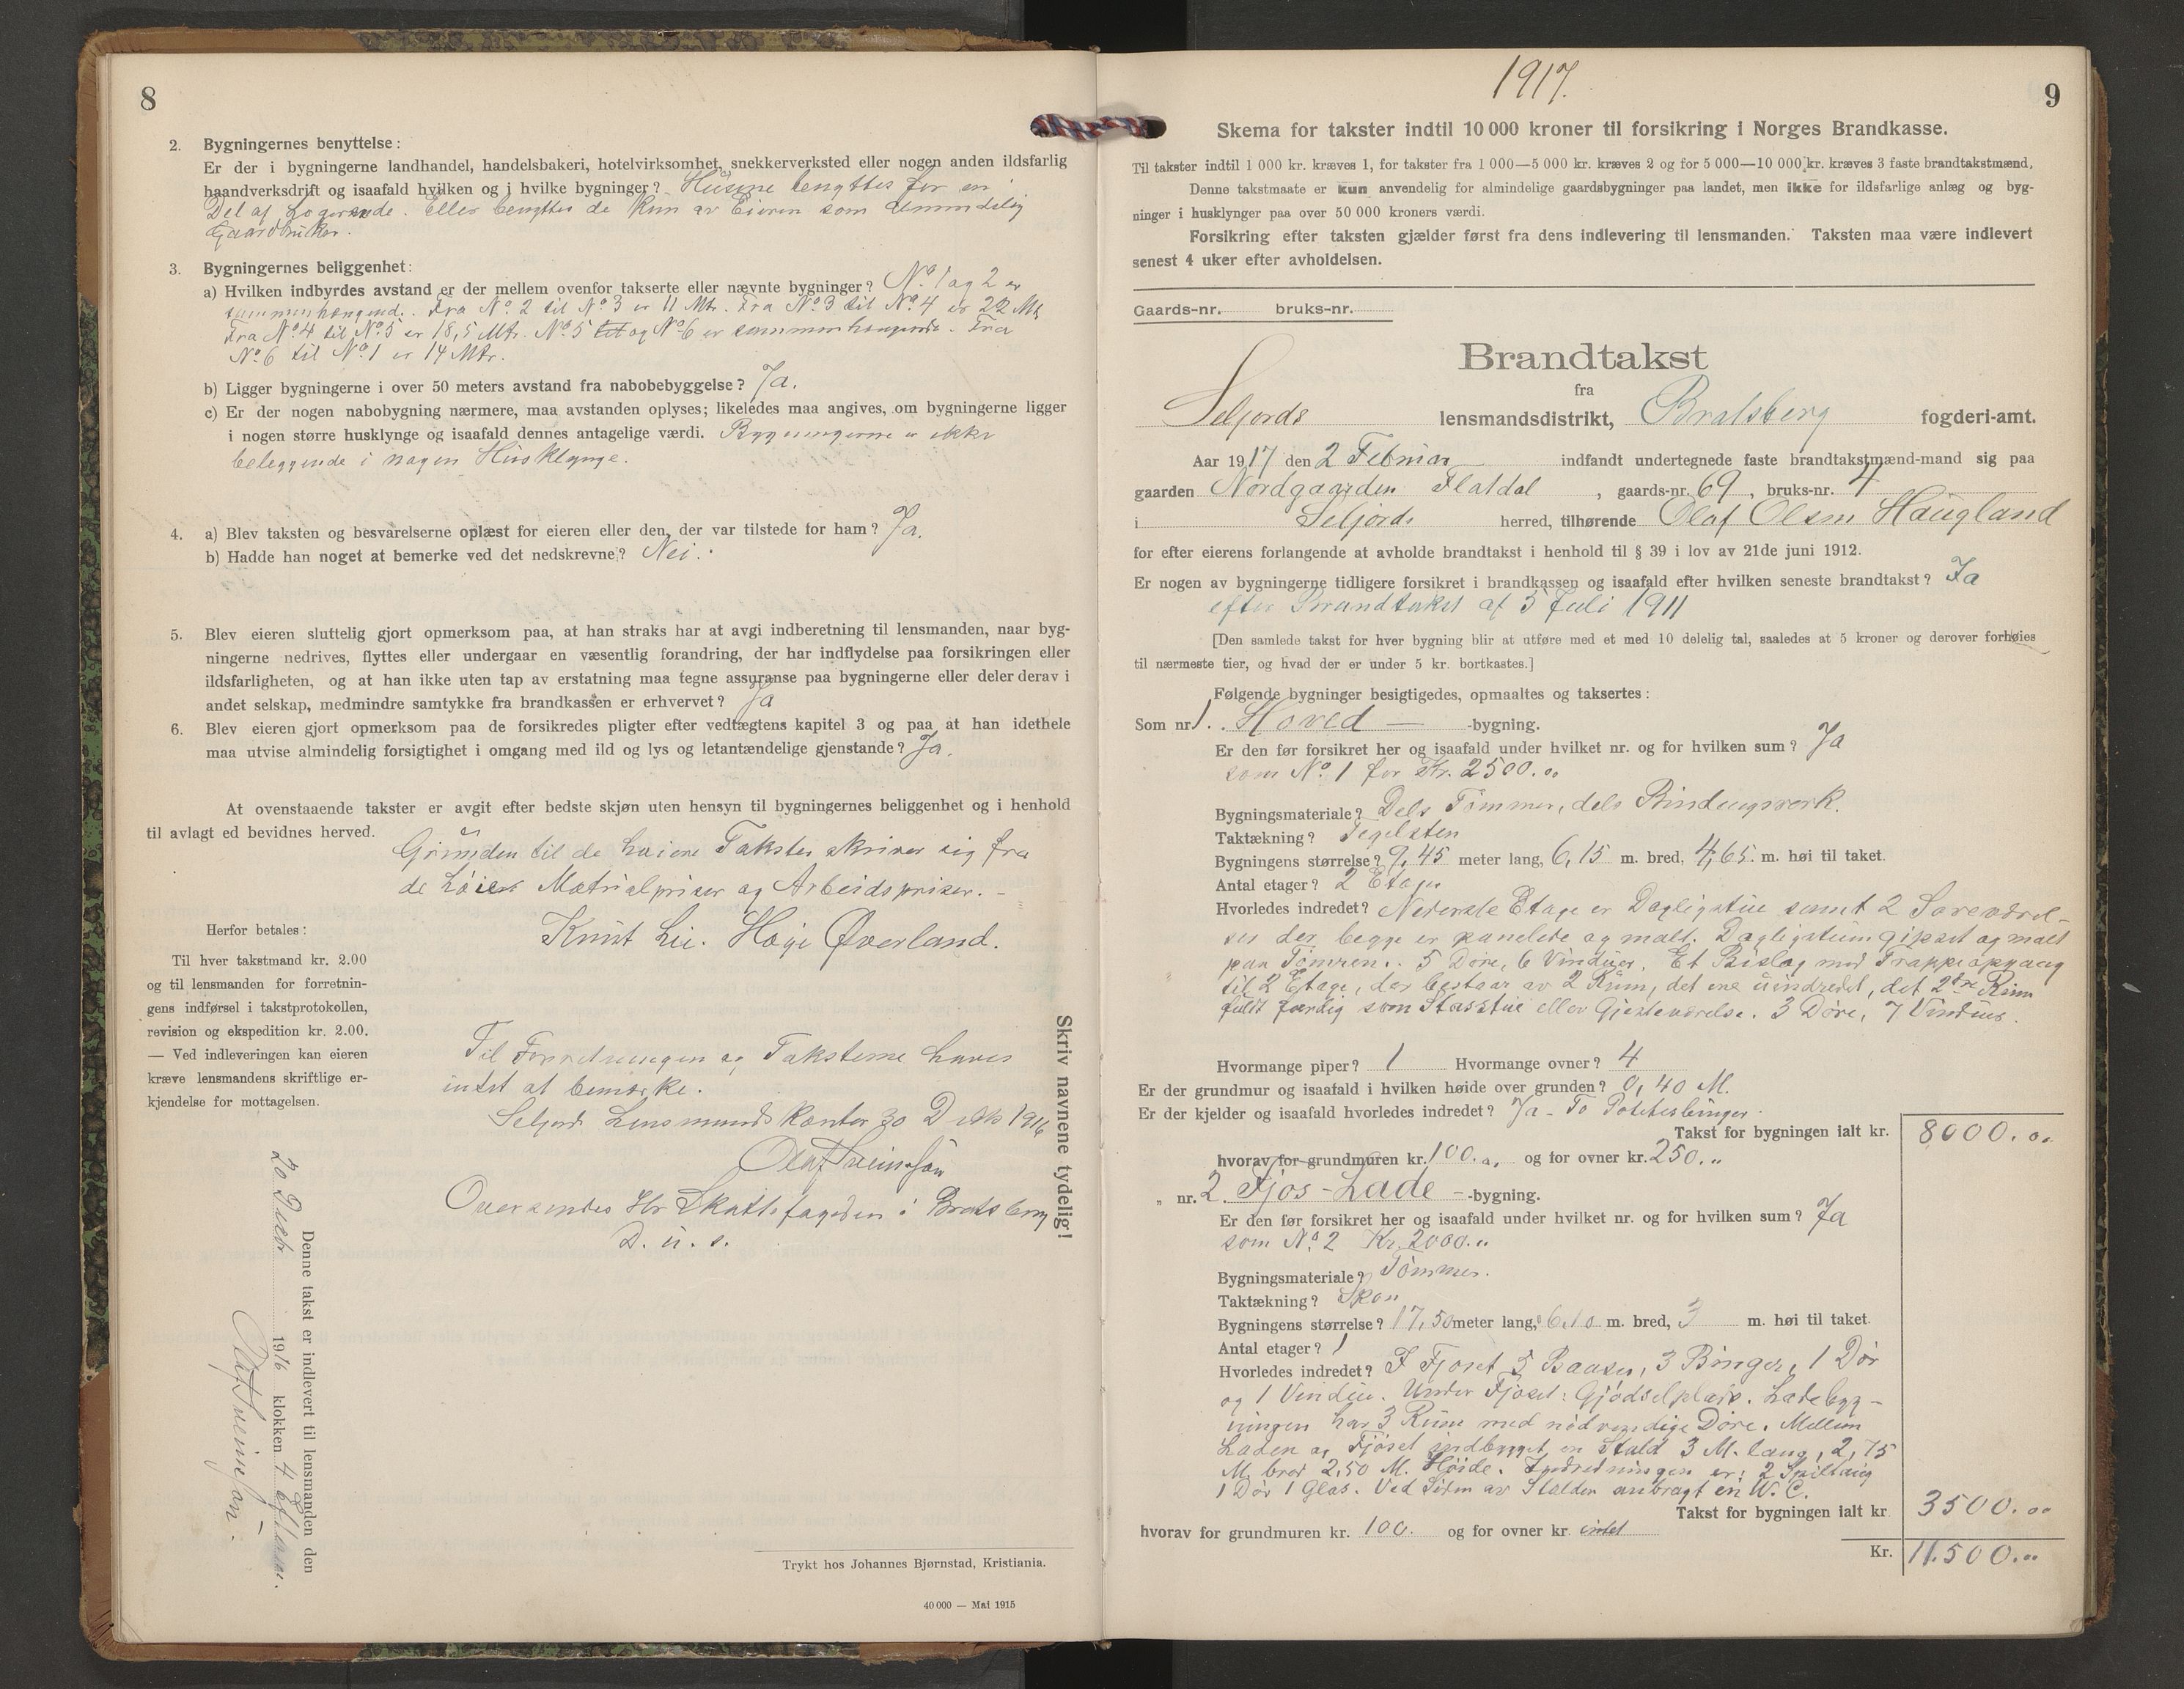 8
2. Bygningernes benyttelse:
Er der i bygningerne landhandel, handelsbakeri, hotelvirksomhet, snekkerverksted eller nogen anden ildsfarlig
haandverksdrift og isaafald hvilken og i hvilke bygninger? Husene benyttes for en
Del af Logerende. Ellers benyttes de kun av Eieren som almindelig
Gaardbruker.
3. Bygningernes beliggenhet:
a) Hvilken indbyrdes avstand er der mellem ovenfor takserte eller nævnte bygninger? No. 1 og 2 er
sammenhængend. Fra No. 2 til No. 3 er 11 Mtr. Fra No. 3 til No. 4 er 22 Mt
Fra No. 4 til No. 5 er 18,5 Mtr. No. 5 til og No. 6 er sammenhængende. Fra
No. 6 til No. 1 er 14 Mtr.
b) Ligger bygningerne i over 50 meters avstand fra nabobebyggelse? Ja.
c) Er der nogen nabobygning nærmere, maa avstanden oplyses; likeledes maa angives, om bygningerne ligger
i nogen større husklynge og isaafald dennes antagelige værdi. Bygningerne er ikke
beleggende i nogen Husklynge.
4. a) Blev taksten og besvarelserne oplæst for eieren eller den, der var tilstede for ham? Ja.
b) Hadde han noget at bemerke ved det nedskrevne? Nei.
5. Blev eieren sluttelig gjort opmerksom paa, at han straks har at avgi indberetning til lensmanden, naar byg-
ningerne nedrives, flyttes eller undergaar en væsentlig forandring, der har indflydelse paa forsikringen eller
ildsfarligheten, og at han ikke uten tap av erstatning maa tegne assuranse paa bygningerne eller deler derav i
andet selskap, medmindre samtykke fra brandkassen er erhvervet? Ja
6. Blev eieren gjort opmerksom paa de forsikredes pligter efter vedtægtens kapitel 3 og paa at han idethele
maa utvise almindelig forsigtighet i omgang med ild og lys og letantændelige gjenstande? Ja.
At ovenstaaende takster er avgit efter bedste skjøn uten hensyn til bygningernes beliggenhet og i henhold
til avlagt ed bevidnes herved.
Grunden til de høiere Takster skriver sig fra
de høie Matrialpriser og Arbeidspriser. -
Knut Lie. Høge Øverland.
Herfor betales:
Til hver takstmand kr. 2.00
og til lensmanden for forretnin-
gens indførsel i takstprotokollen,
revision og ekspedition kr. 2.00.
— Ved indleveringen kan eieren
kræve lensmandens skriftlige er-
kjendelse for mottagelsen.
Til Forretningen og Taksterne haves
intet at bemærke.
Seljord Lensmandskontor 30 Dcbr 1916
Olaf Sveinsson
Oversendes Hr Skattefogeden i Bratsberg
D. u. s.
Skriv navnene tydelig!
Denne takst er indlevert til lensmanden den
20 Decbr 1916 klokken 4 Efterm.
Olaf Sveinsson.
Trykt hos Johannes Bjørnstad, Kristiania.
40 000 — Mai 1915
1917.
9
Skema for takster indtil 10 000 kroner til forsikring i Norges Brandkasse.
Til takster indtil 1 000 kr. kræves 1, for takster fra 1 000—5 000 kr. kræves 2 og for 5 000—10 000 kr. kræves 3 faste brandtakstmænd.
Denne takstmaate er kun anvendelig for almindelige gaardsbygninger paa landet, men ikke for ildsfarlige anlæg og byg-
ninger i husklynger paa over 50 000 kroners værdi.
Forsikring efter taksten gjælder først fra dens indlevering til lensmanden. Taksten maa være indlevert
senest 4 uker efter avholdelsen.
Gaards-nr. bruks-nr.
Brandtakst
fra
Seljords lensmandsdistrikt, Bratsberg fogderi-amt.
Aar 1917 den 2 Februar indfandt undertegnede faste brandtakstmænd-mand sig paa
gaarden Nordgaarden Flatdal, gaards-nr. 69, bruks-nr. 4
i Seljords herred, tilhørende Olaf Olsen Haugland
for efter eierens forlangende at avholde brandtakst i henhold til § 39 i lov av 21de juni 1912.
Er nogen av bygningerne tidligere forsikret i brandkassen og isaafald efter hvilken seneste brandtakst? Ja
efter Brandtakst af 5 Juli 1911
[Den samlede takst for hver bygning blir at utføre med et med 10 delelig tal, saaledes at 5 kroner og derover forhøies
til nærmeste tier, og hvad der er under 5 kr. bortkastes.]
Følgende bygninger besigtigedes, opmaaltes og taksertes:
Som nr. 1. Hoved — -bygning.
Er den før forsikret her og isaafald under hvilket nr. og for hvilken sum? Ja
som No. 1 for Kr. 2500.00
Bygningsmateriale? Dels Tømmer, dels Bindingsverk.
Taktækning? Tegelsten
Bygningens størrelse? 9,45 meter lang, 6,15 m. bred, 4,65 m. høi til taket.
Antal etager? 2 Etager
Hvorledes indredet? Nederste Etage er Dagligstue samt 2 Soveværel-
ser der begge er panelede og malt. Dagligstuen gipset og malt
paa Tømren. 5 Døre, 6 Vinduer. Et Bislag med Trappeopgang
til 2 Etage, der bestaar av 2 Rum, det ene uindredet, det 2det Rum
fuldt færdig som Stasstue eller Gjesteværelse. 3 Døre, 7 Vinduer.
Hvormange piper? 1 Hvormange ovner? 4
Er der grundmur og isaafald i hvilken høide over grunden? 0,40 M.
Er der kjelder og isaafald hvorledes indredet? Ja - To Potetesbinger.
Takst for bygningen ialt kr. 8000.00
hvorav for grundmuren kr. 100.00 og for ovner kr. 250.„
„ nr. 2. Fjøs-Lade - -bygning.
Er den før forsikret her og isaafald under hvilket nr. og for hvilken sum? Ja
som No. 2 Kr. 2000.„
Bygningsmateriale? Tømmer.
Taktækning? Spon
Bygningens størrelse? 17,50 meter lang, 6,10 m. bred, 3 m. høi til taket.
Antal etager? 1
Hvorledes indredet? I Fjøset 5 Baaser, 3 Binger, 1 Dør
og 1 Vindue. Under Fjøset: Gjødselplass. Ladebyg-
ningen har 3 Rum med nødvendige Døre. Mellem
Laden og Fjøset indbygget en Stald 3 M. lang, 2,75
M. bred 2,50 M. Høide. Indredningen er: 2 Spiltaug
1 Dør 1 Glas. Ved Siden av Stalden anbragt en W. C.
Takst for bygningen ialt kr 3500.00
hvorav for grundmuren kr. 100. og for ovner kr. intet
Kr. 11.500.00